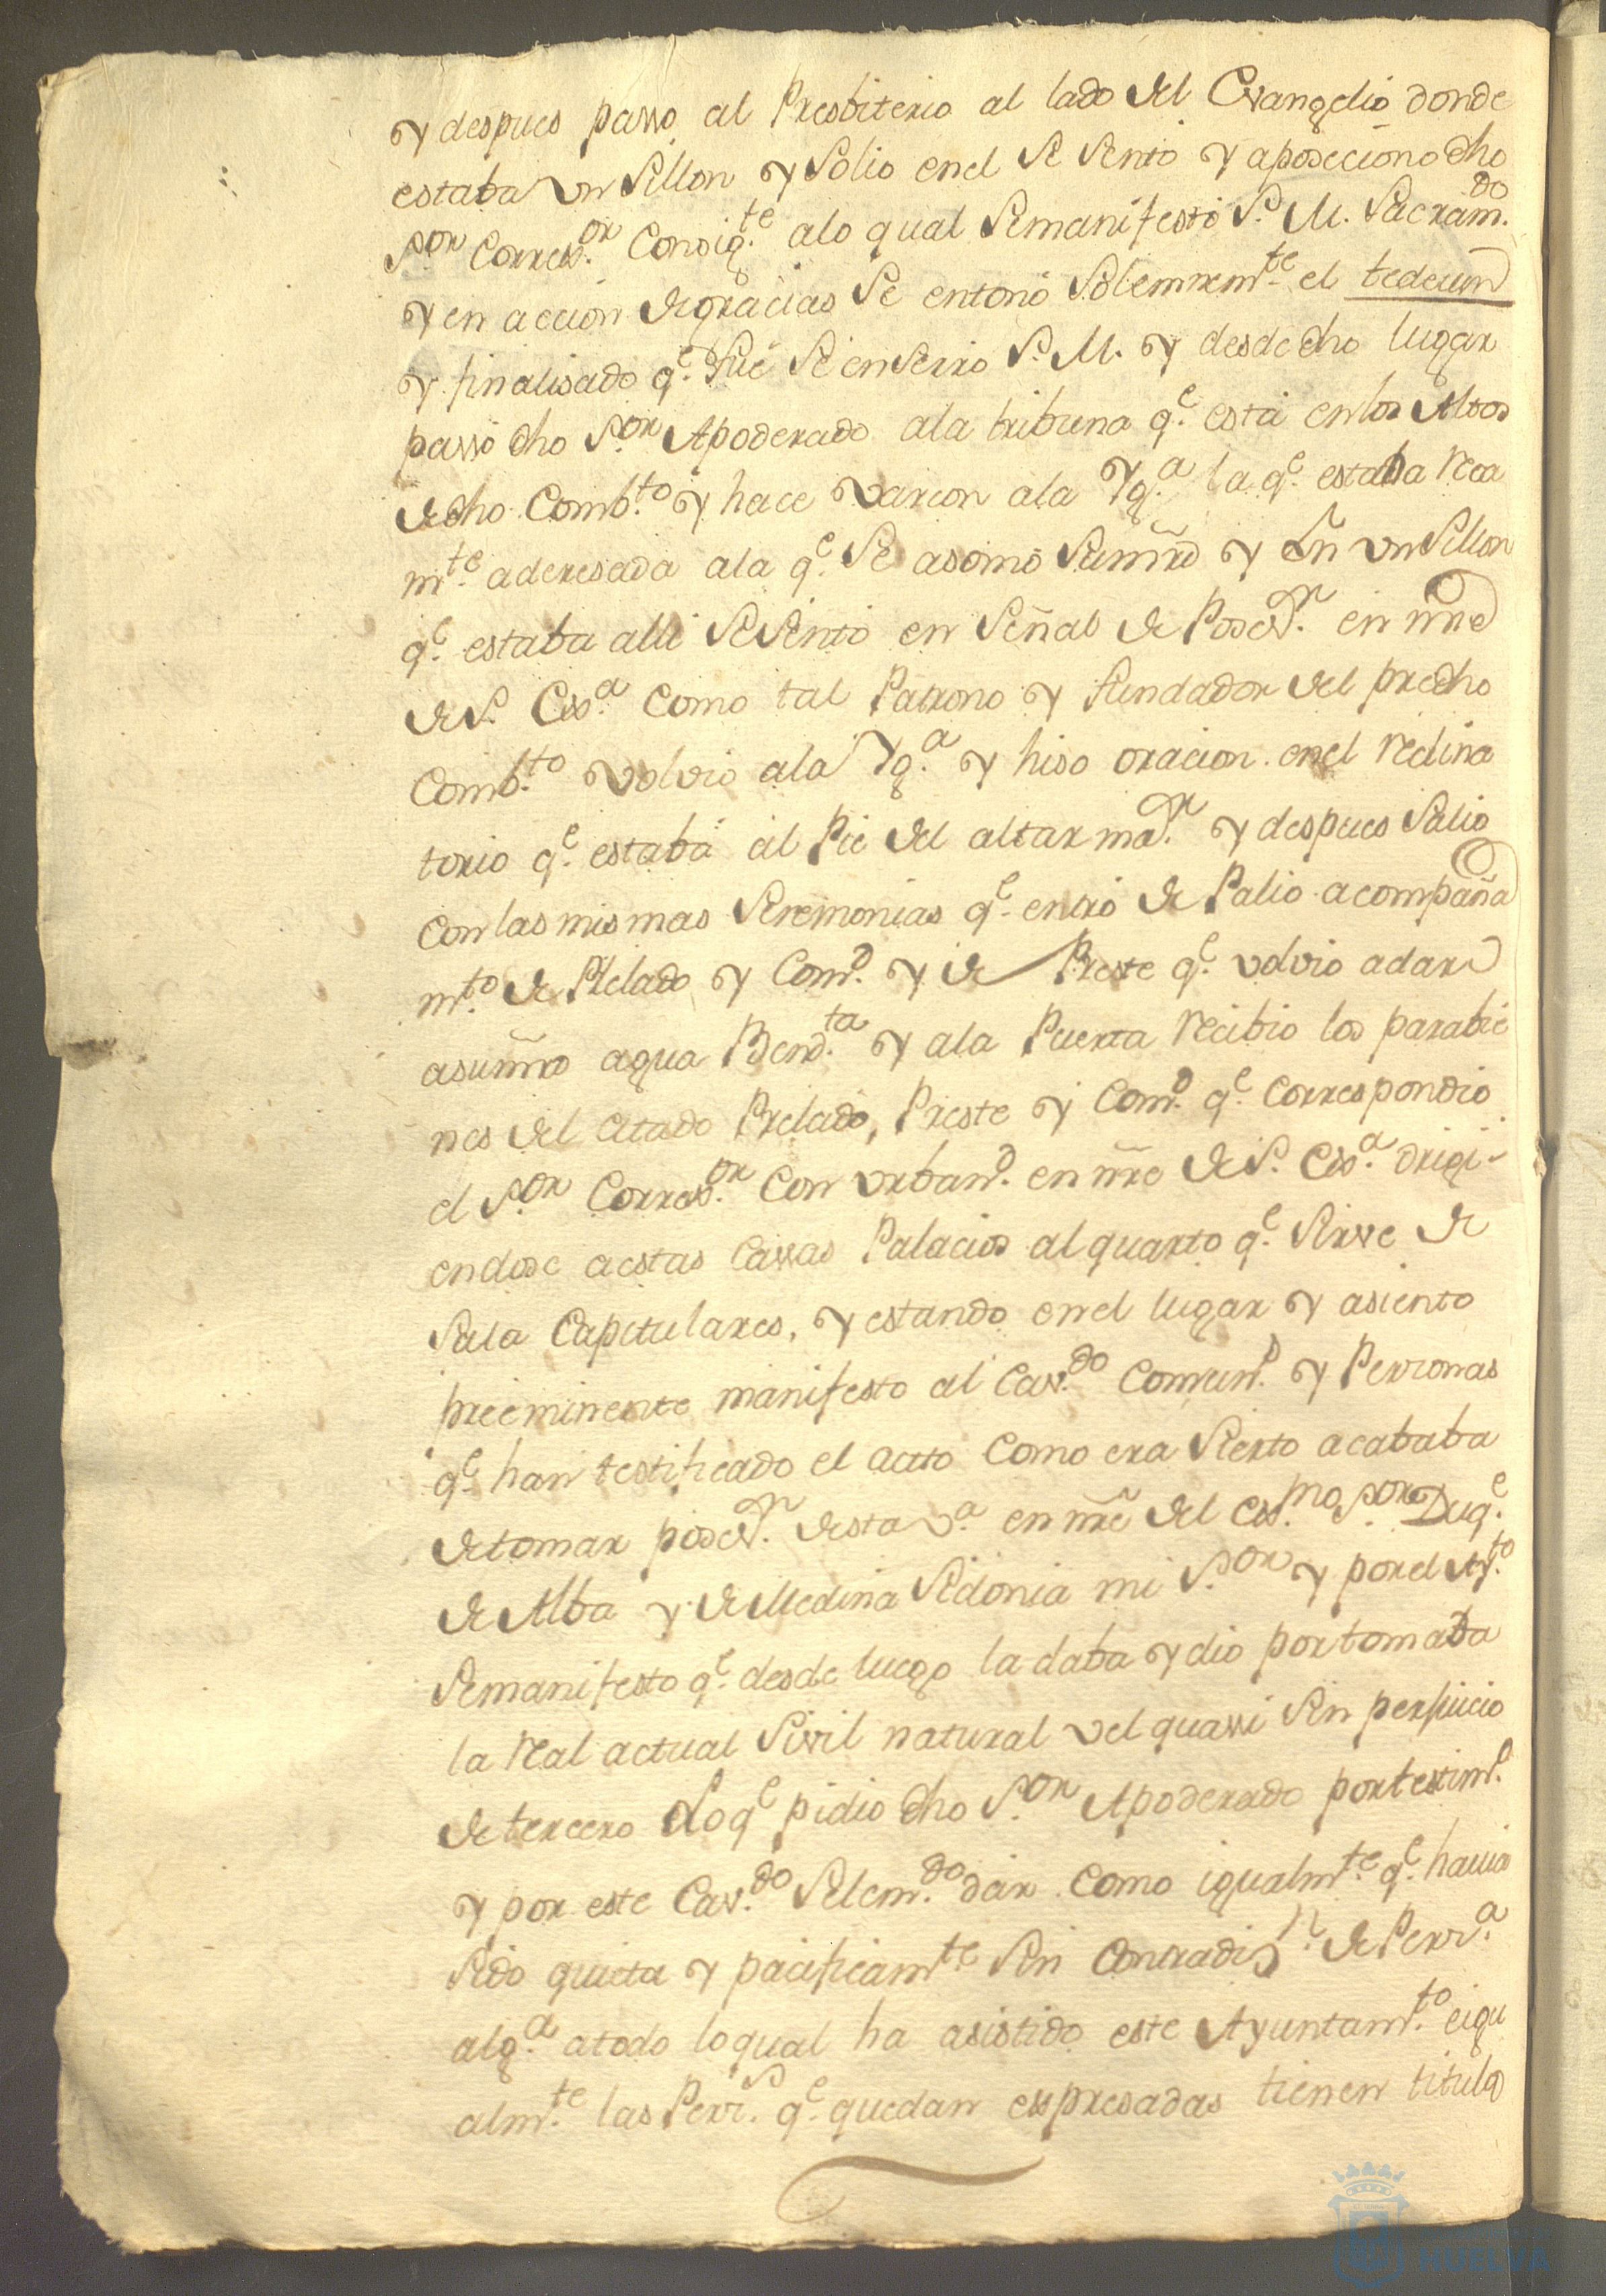 y despues passo al Presbiterio al lado del Evangelio donde
estaba vn Sillon y Solio en el Se Sento y aposeciono dho
S.or Corres.or Consig.te a lo qual Se manifestó S. M. Sacram.do
y en accion de gracias Se entonó Solemnem.te el tedeum
y finalisado q.e fué Se enSerró S. M. y desde dho lugar
passó dho S.or Apoderado a la tribuna q.e está en los Altos
de dho Comb.to y hace varcon a la Yg.a la q.e estaba rica
m.te aderesada a la q.e Se asomó Su mrd y En vn Sillon
q.e estaba alli Se Sento en Señal de Poses.n en nre
de S. Ex.a como tal Patrono y fundador del predho
Comb.to volvió a la Yg.a y hiso oracion en el reclina
torio q.e estaba al Pie del altar ma.r y despues Salio
con las mismas Seremonias q.e entró de Palio acompaña
m.to de Prelado y Com.d y de Preste q.e volvio a dar
a su mrd agua Bend.ta y a la Puerta recibio los parabie
nes del citado Prelado, Preste y Com.d q.e correspondio
el S.or Corres.or con vrban.d en nre de S. Ex.a dirigi-
endose a estas Cassas Palacios al quarto q.e Sirve de
Sala Capitulares, y estando en el lugar y asiento
preeminente manifesto al Cav.do Comun.d y Perronas
q.e han testificado el acto como era Sierto acababa
de tomar poses.n desta v.a en nre del Ex.mo S.or Duq.e
de Alba y de Medina Sidonia mi S.or y por el Ay.to
Se manifesto q.e desde luego la daba y dio por tomada
la real actual Sivil natural vel quassi Sin perjuicio
de tercero Lo q.e pidio dho S.or Apoderado por testim.o
y por este Cav.do Se le m.do dar como igualm.te q.e havia
Sido quieta y pacificam.te Sin Contradi.n de Perr.a
alg.a a todo lo qual ha asistido este Ayuntam.to e igu
alm.te las Perr.s q.e quedan expresadas tienen titulo
HUELVA